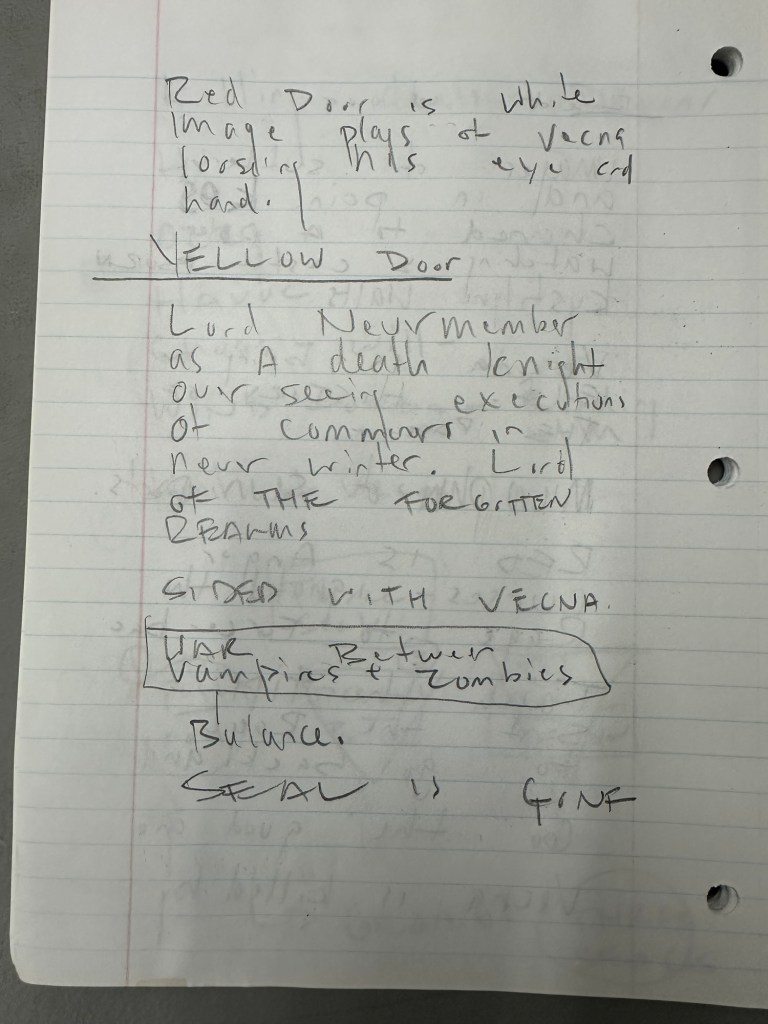 Red Door is white
image plays of Vecna
loosding his eye and
hand.
YELLOW Door
Lord Neurmember
as A death knight
our seeing executions
of commours in
neur winter. Lord
of THE FORGOTTEN
REALMS
SIDED WITH VECNA.
WAR Betwer
Vampires + Zombies
Balance.
SEAL is GONE